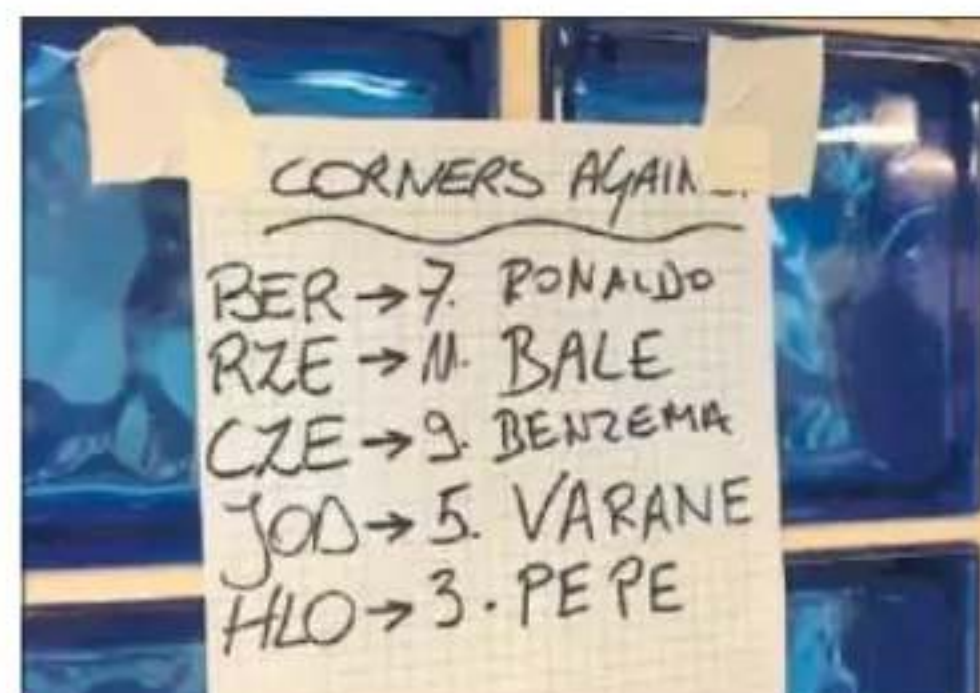 CORNERS AGAIN...
BER → 7. RONALDO
RZE → 11. BALE
CZE → 9. BENZEMA
JOD → 5. VARANE
HLO → 3. PEPE